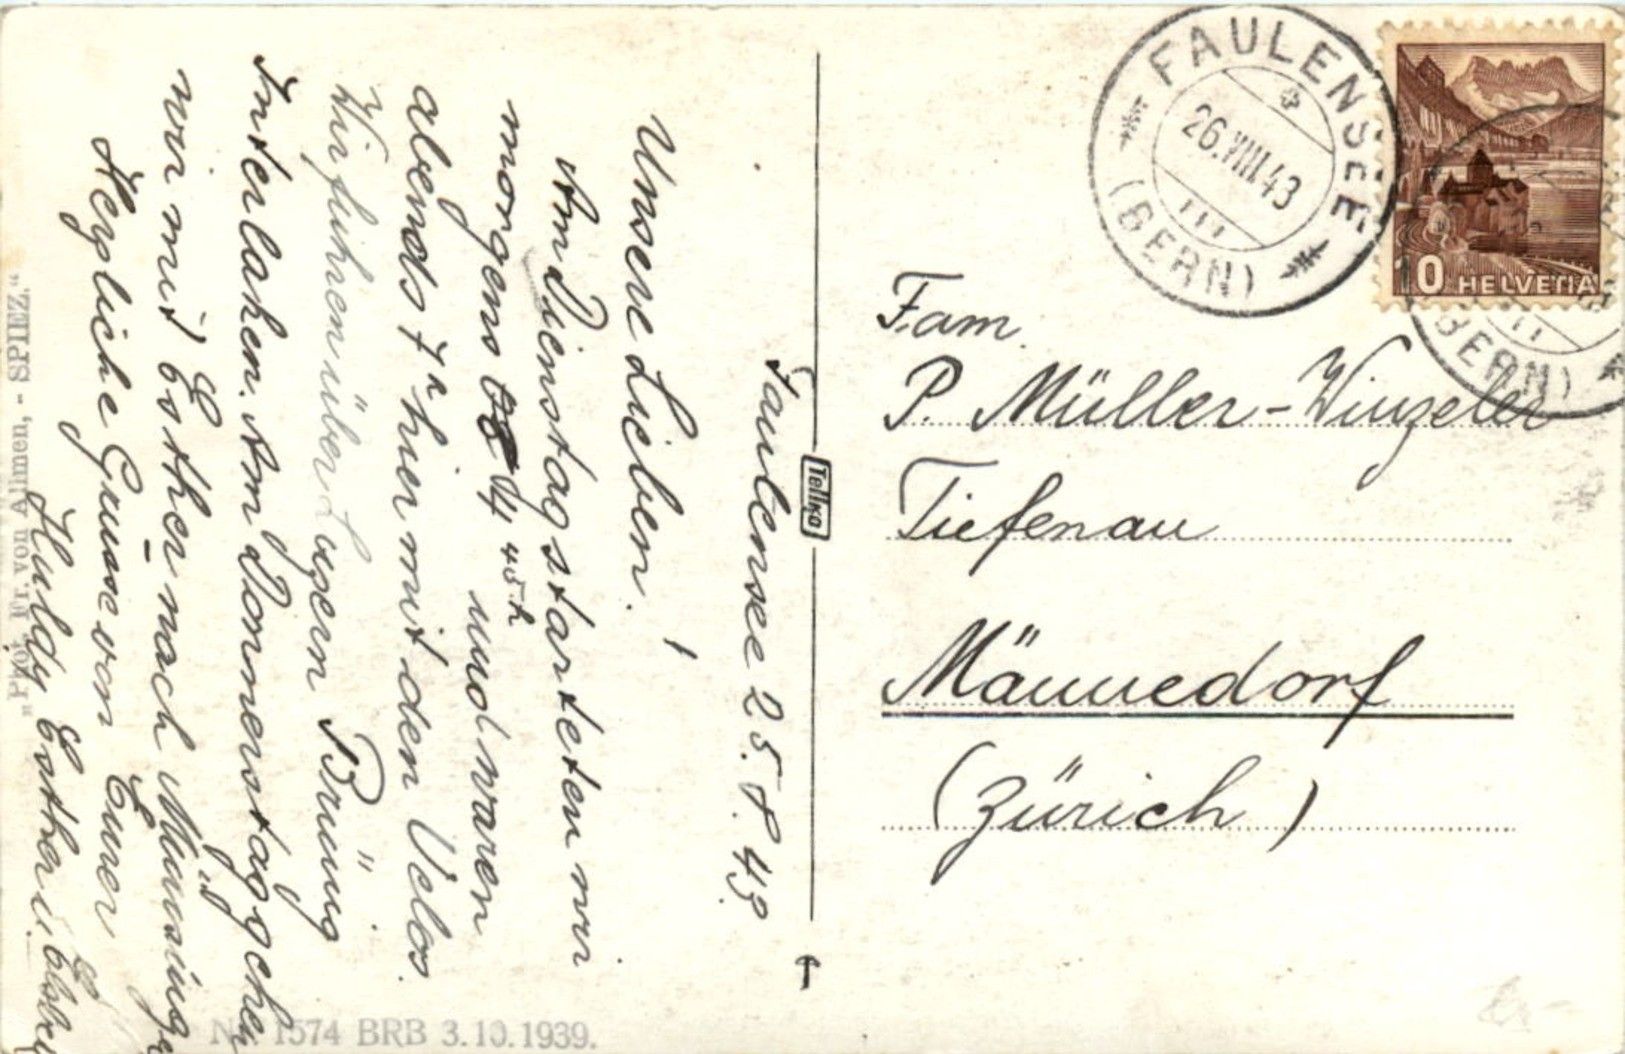 Faulensee 25.8.43.
Unsere Lieben!
Am Dienstag starteten wir
morgens 4 45 h und waren
abends 7 h hier mit den Velos.
Wir fuhren über Luzern Brünig
Interlaken. Am Donnerstag gehen
wir mit Esther nach
Herzliche Grüsse von Eurer
Huldy Esther u.
"Phot. Fr. von Allmen, - SPIEZ."
N° 1574 BRB 3.10.1939.
Tellko
FAULENSEE
26.VIII.43
(BERN)
10 HELVETIA
(BERN)
Fam.
P. Müller-Winzeler
Tiefenau
Männedorf
(Zürich)